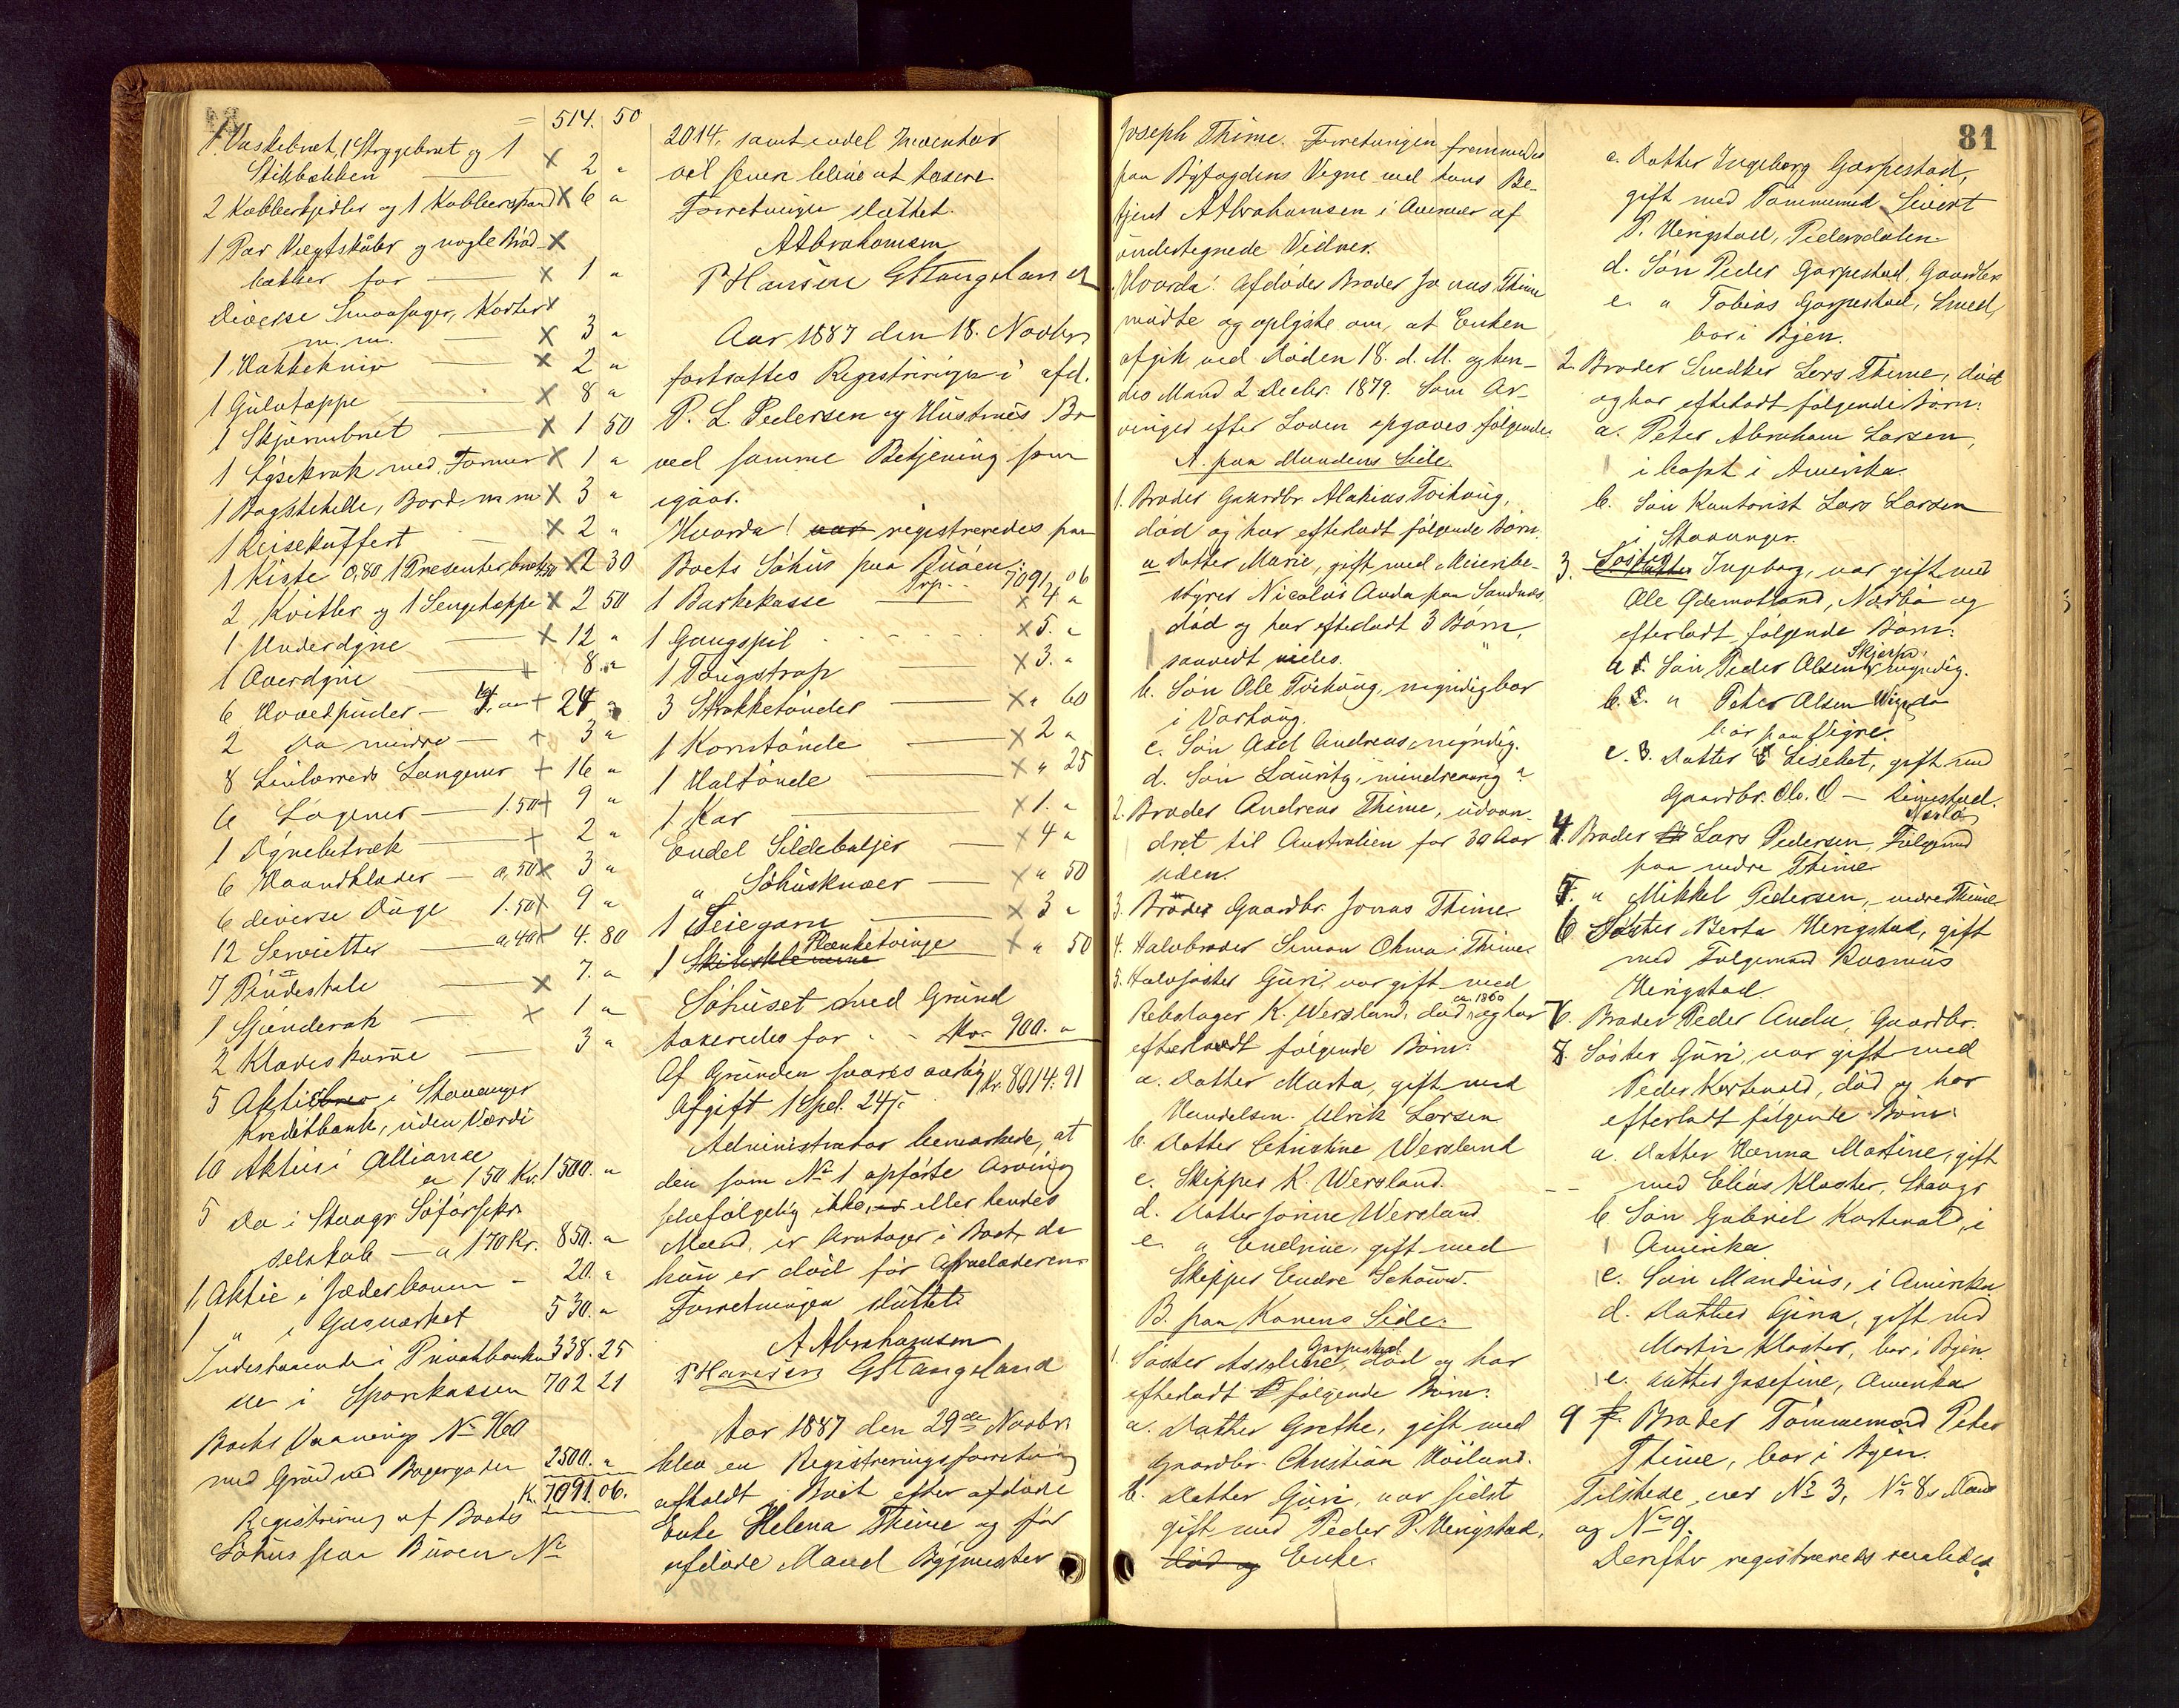 514. 50
1 Vaskebræt, 1 Strygebræt og 1
Stikbækken — X 2 "
2 Kobberkjedler og 1 Kobberspand X 6 "
1 Par Vægtskåler og nogle Bród- X
bakker for — X 1 "
Diverse Smaasager, Korter X
m. m. — X 3 "
1 Hakkekniv — X 2 "
1 Gulvtæppe — X 8 "
1 Skjærmbræt — X 1 50
1 Lysekrak med Former X 1 "
1 Bagstehelle, Bord m m X 3 "
1 Reisekuffert — X 2 "
1 Kiste 0,80 1 Presenterbræt 1,50 X 2 30
2 Kvitler og 1 Sengetæppe X 2 50
1 Underdyne — X 12 "
1 Overdyne — X 8. "
6 Hovedpuder — 4, " + 24 "
2 Do mindre — + 3 "
8 Linlærreds Lagener + 16 "
6 Lagener — 1.50 + 9 "
1 Dynebetræk — + 2 "
6 Haandklæder — a,50 X 3 "
6 diverse Duge 1.50 X 9 "
12 Servietter — a,40 X 4.80
7 7. "
1 — X 1 "
2 Klædeskurve — 3 "
5 Aktiebrev i Stavanger
Kreditbank, uden Værdi
10 Aktier i Alliance
a 150 Kr. 1500. "
5 Do i Stavgr Söforsikr
selskab — a 170 Kr. 850. "
1 Aktie i Jæderbanen — 20. "
1 " i Gasværket 530. "
Indestaaende i Privatbanken 338.25
do i Sparekassen 702 21
Boets Vaaning No 960
med Grund ved Bagergaden 2500. "
Kr. 7091.06.
Registrering af Boets
Söhus paa Buöen No
2014, samt endel Inventar
vil senere blive at taxere
Forretningen sluttet.
A Abrahamsen
P Hansen G Stangeland
Aar 1887 den 18. Novbr
fortsattes Registreringen i afd.
P. L. Pedersen og Hustrues Bo
ved samme Betjening som
igaar.
Hvorda! var registreredes paa
Boets Söhus paa Buöen:
Trp. 7091,06
1 Barkekasse X 4 "
1 Gangspil X 5. "
1 Tougstrap — X 3. "
3 Strokketönder — X " 60
1 Korntönde — X 2 "
1 Haltönde — X " 25
1 Kar — X 1. "
Endel Sildebaljer — X 4 "
" Söhusknæer — X " 50
1 Seiegarn — X 3 "
1 Plænketvinge X " 50
Söhuset med Grund
taxeredes for - - Kr. 900. "
Af Grunden svares aarlig
Kr. 8014.91
Afgift 1 Spd. 24 s.
Administrator bemærkede, at
den som No 1 opförte Arving
selvfölgelig ikke, eller hendes
Mand, er Arvtager i Boet, da
hun er död för Arveladeren.
Forretningen sluttet.
A Abrahamsen
P Hansen G Stangeland
Aar 1887 den 29de Novbr.
blev en Registreringsforretning
afholdt i Boet efter afdöde
Enke Helena Thime og för
afdöde Mand Bygmester
81
Joseph Thime. Forretningen fremmedes
paa Byfogdens Vegne ved hans Be-
tjent A Abrahamsen i Overvær af
undertegnede Vidner.
Hvorda: Afdödes Broder Jonas Thime
mödte og oplyste om, at Enken
afgik ved Döden 18. d. M. og hen-
des Mand 2 Decbr. 1879. Som Ar-
vinger efter Loven opgaves fölgende:
A. paa Mandens Side.
1. Broder Gaardbr. Malakias Tvihaug,
död og har efterladt fölgende Börn:
a Datter Marie, gift med Meieribe-
styrer Nicolai Auda paa Sandnæs,
död og har efterladt 3 Börn,
saavidt vides.
b. Sön Ole Tvihaug, myndig bor
i Varhaug.
c. Sön Axel Andreas, myndig.
d. Sön Lauritz, mindreaarig "
2. Broder Andreas Thime, udvan-
dret til Australien for 30 Aar
siden.
3. Broder Gaardbr. Jonas Thime.
4. Halvbroder Simon Ohma i Thime.
5. Halvsöster Guri, var gift med
Rebslager K. Wersland, död ca. 1860 og har
efterladt fölgende Börn:
a. Datter Marta, gift med
Handelsm. Ulrik Larsen
b. Datter Christine Wersland
c. Skipper K. Wersland.
d. Datter Jorine Wersland
e. " Endrine, gift med
Skipper Endre Schöuw.
B. paa Konens Side.
1. Söster Asseline Garpestad, död og har
efterladt fölgende Börn:
a. Datter Grethe, gift med
Gaardbr. Christian Höiland.
b. Datter Guri, var sidst
gift med Peder P. Herigstad,
död og Enke.
c. Datter Ingeborg Garpestad,
gift med Tömmermd Sivert
P. Herigstad, Pedersdalen
d. Sön Peder Garpestad, Gaardbr.
e. " Tobias Garpestad, Smed,
bor i Byen.
2. Broder Snedker Lars Thime, död
og har efterladt fölgende Börn:
a. Peter Abraham Larsen,
i bosat i Amerika.
b. Sön Kontorist Lars Larsen
i Stavanger.
3. Datter Söster Ingeborg, var gift med
Ole Ødemotland, Nærbö og
efterladt fölgende Börn:
a 1. Sön Peder Olsen Skjærpe, myndig.
b. 2. " Peter Olsen Vigre
bor paa Vigre.
c. 3. Datter Lisebet, gift med
Gaardbr. Ol. O — Limestad.
Nærbö
4. Broder Lars Pedersen, Fölgemd
paa nedre Thime
5. " Mikkel Pedersen, nedre Thime
6 Söster Berta Herigstad, gift
med Folgemand Rasmus
Herigstad.
7. Broder Peder Auda, Gaardbr.
8. Söster Guri, var gift med
Peder Kartevold, död og har
efterladt fölgende Börn:
a. Datter Hanna Martine, gift
med Elias Kloster, Stavgr
b Sön Gabriel Kartevold, i
Amerika
c. Sön Mandius, i Amerika
d. Datter Gina, gift med
Martin Kloster, bor i Byen.
e. Datter Josefine, Amerika
9 Broder Tömmermand Peter
Thime, bor i Byen.
Tilstede var No 3, No 8s Mand
og No 9.
Derefter registreredes saaledes